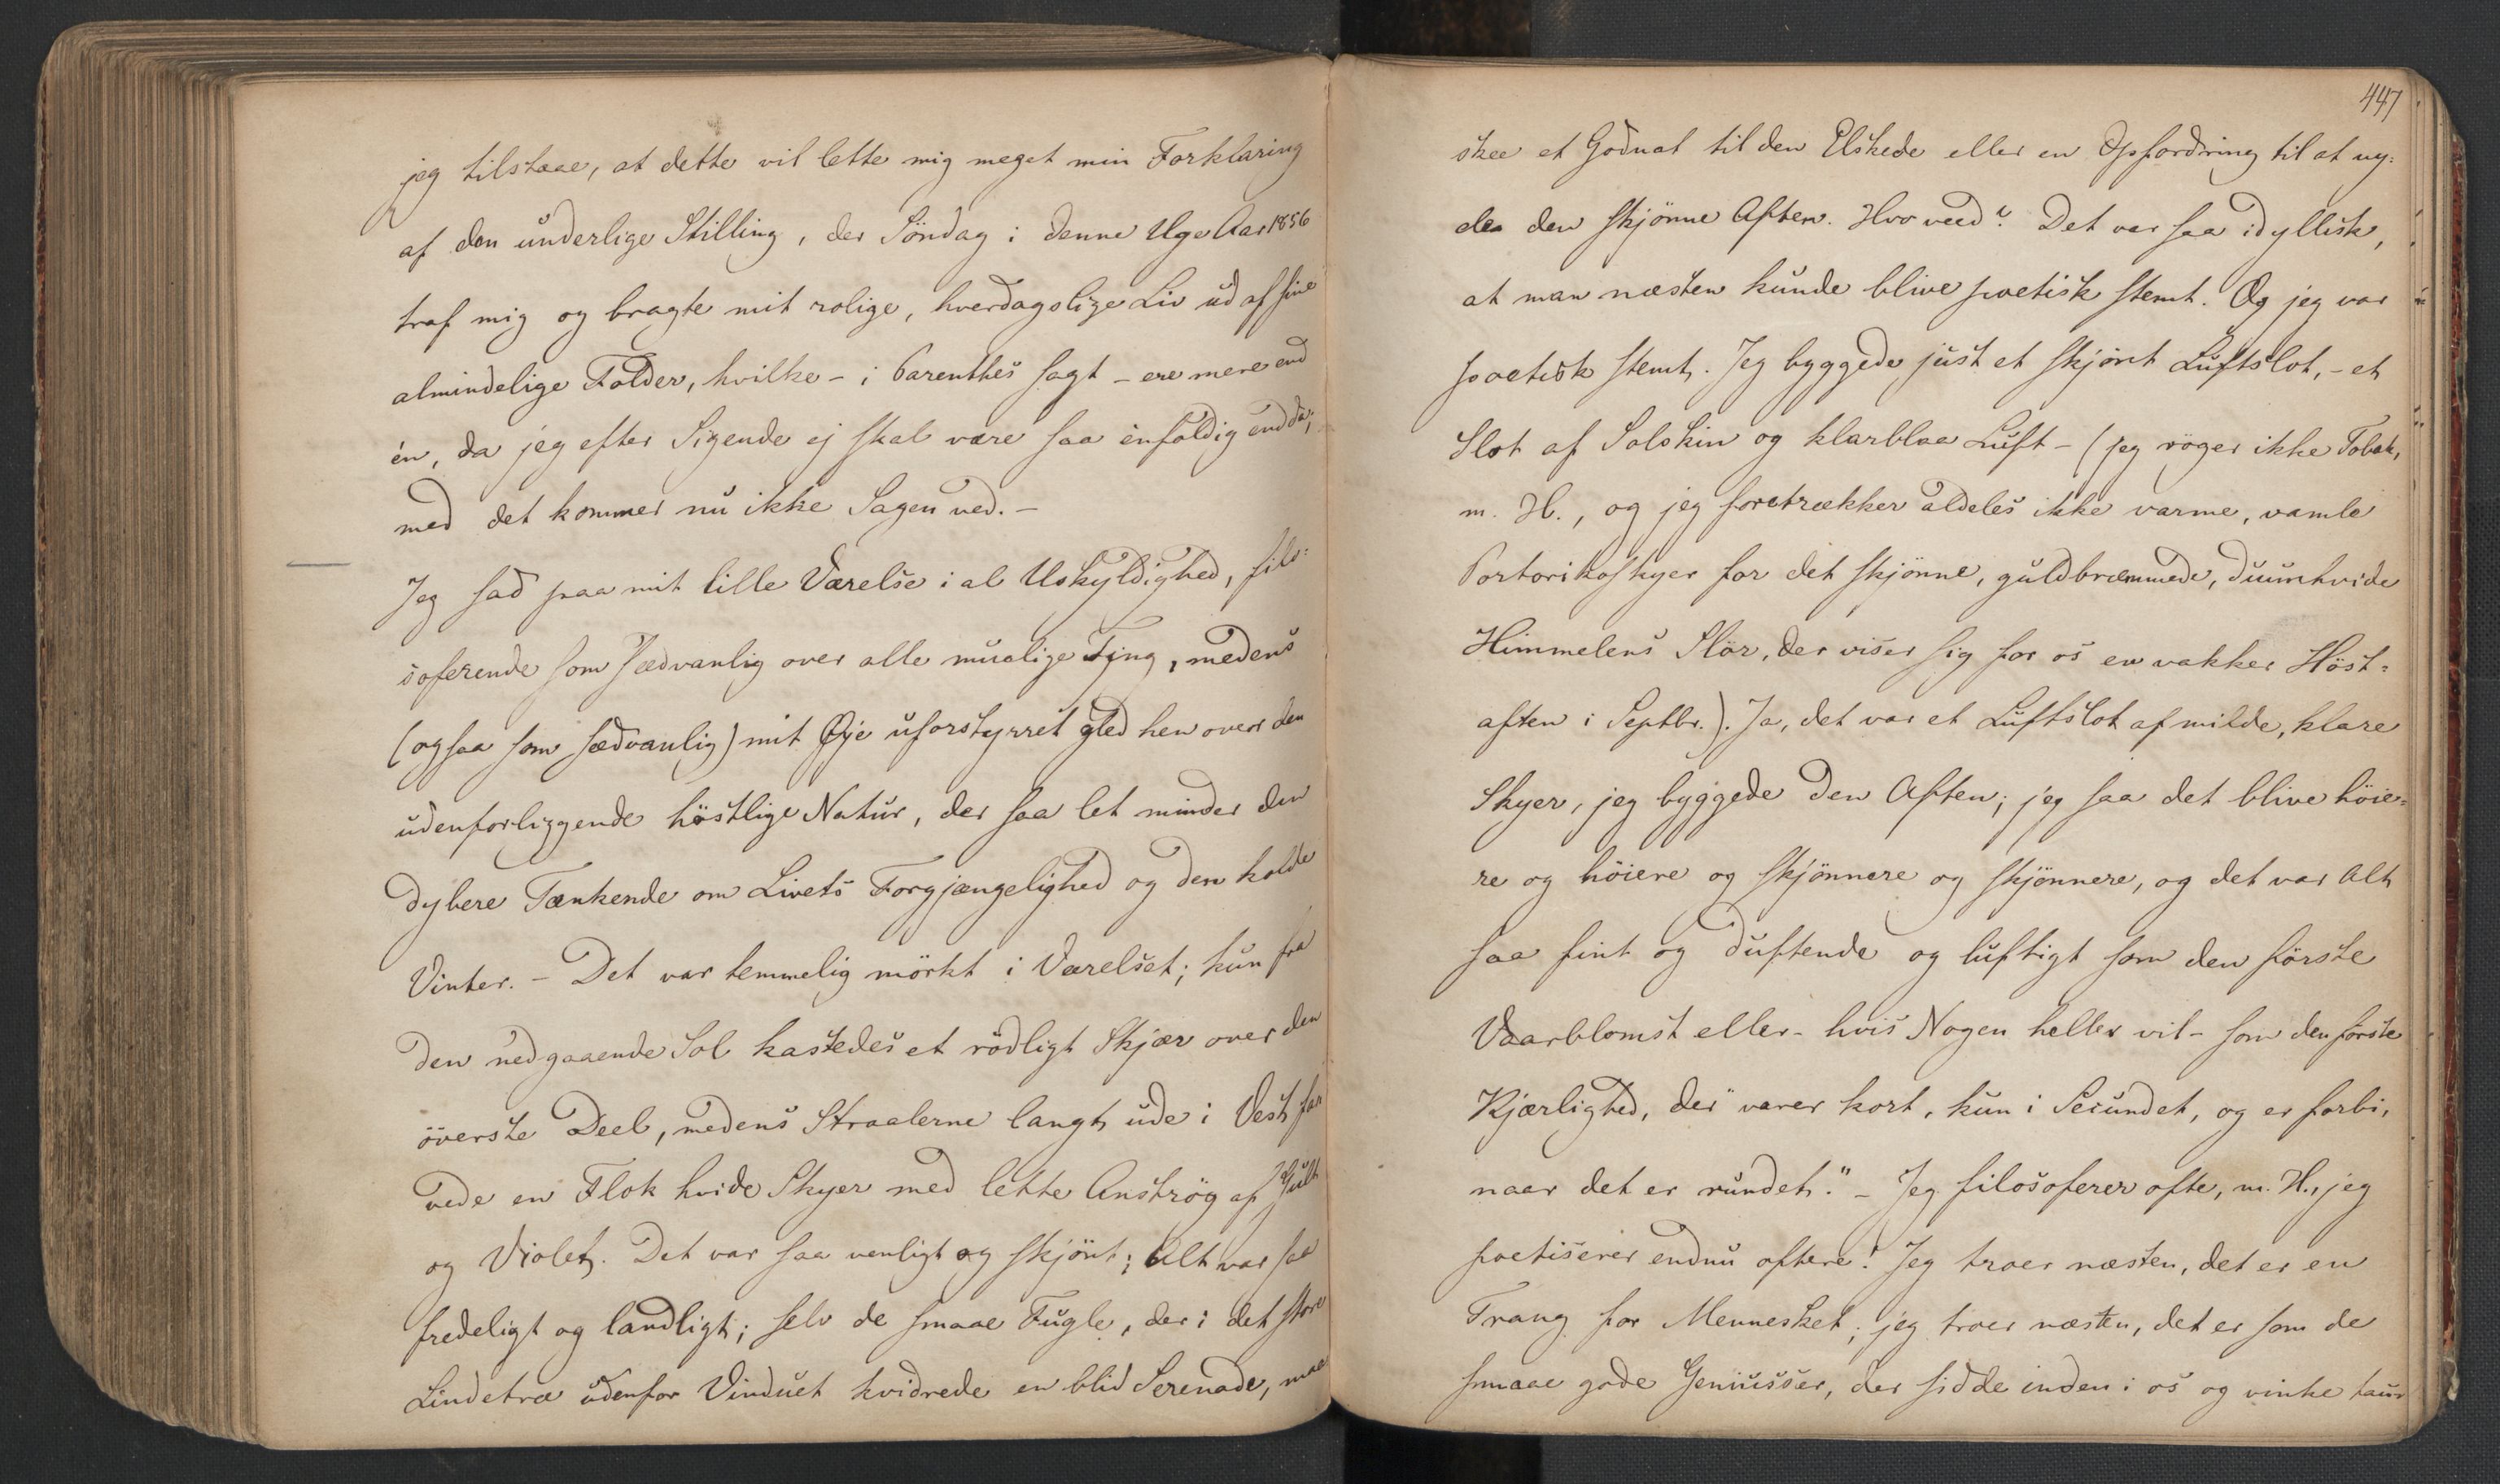 jeg tilstaae, at dette vil lette mig meget min Forklaring
af den underlige Stilling, der Söndag i denne Uge Aar 1856
traf mig og bragte mit rolige, hverdagslige Liv ud af sine
almindelige Folder, hvilke – i Parenthes sagt – ere mere end
én, da jeg efter Sigende ej skal være saa énfoldig endda;
med det kommer nu ikke Sagen ved. –
Jeg sad paa mit lille Værelse i al Uskyldighed, filo-
soferende som sædvanlig over alle muelige Ting, medens
(ogsaa som sædvanlig) mit Øje uforstyrret gled hen over den
udenforliggende höstlige Natur, der saa let minder den
dybere Tænkende om Livets Forgjængelighed og den kolde
Vinter. – Det var temmelig mörkt i Værelset; kun fra
den nedgaaende Sol kastedes et rödligt Skjær over den
överste Deel, medens Straalerne langt ude i Vest far
vede en Flok hvide Skyer med lette Anströg af Gult
og Violet. Det var saa venligt og skjönt; Alt var saa
fredeligt og landligt; selv de smaae Fugle, der i det store
Lindetræ udenfor Vinduet kvidrede en blid Serenade, maa
447
skee et Godnat til den Elskede eller en Opfordring til at ny-
de den skjönne Aften. Hvo veed? Det var saa idyllisk,
at man næsten kunde blive poetisk stemt. Og jeg var
poetisk stemt. Jeg byggede just et skjönt Luftslot, – et
Slot af Solskin og klarblaa Luft – (jeg röger ikke Tobak,
m. H., og jeg foretrækker aldeles ikke varme, vamle
Portorikoskyer for det skjönne, guldbræmmede, duunhvide
Himmelens Slör, der viser sig for os en vakker Höst-
aften i Septbr.). Ja, det var et Luftslot af milde, klare
Skyer, jeg byggede den Aften; jeg saa det blive höie-
re og höiere og skjönnere og skjönnere, og det var Alt
saa fint og duftende og luftigt som den förste
Vaarblomst eller – hvis Nogen heller vil – som den förste
Kjærlighed, der "varer kort, kun i Secundet, og er forbi,
naar det er rundet." – Jeg filosoferer ofte, m. H., jeg
poetiserer endnu oftere! Jeg troer næsten, det er en
Trang for Mennesket; jeg troer næsten, det er som de
smaae gode Geniusser, der sidde inden i os og vinke taus